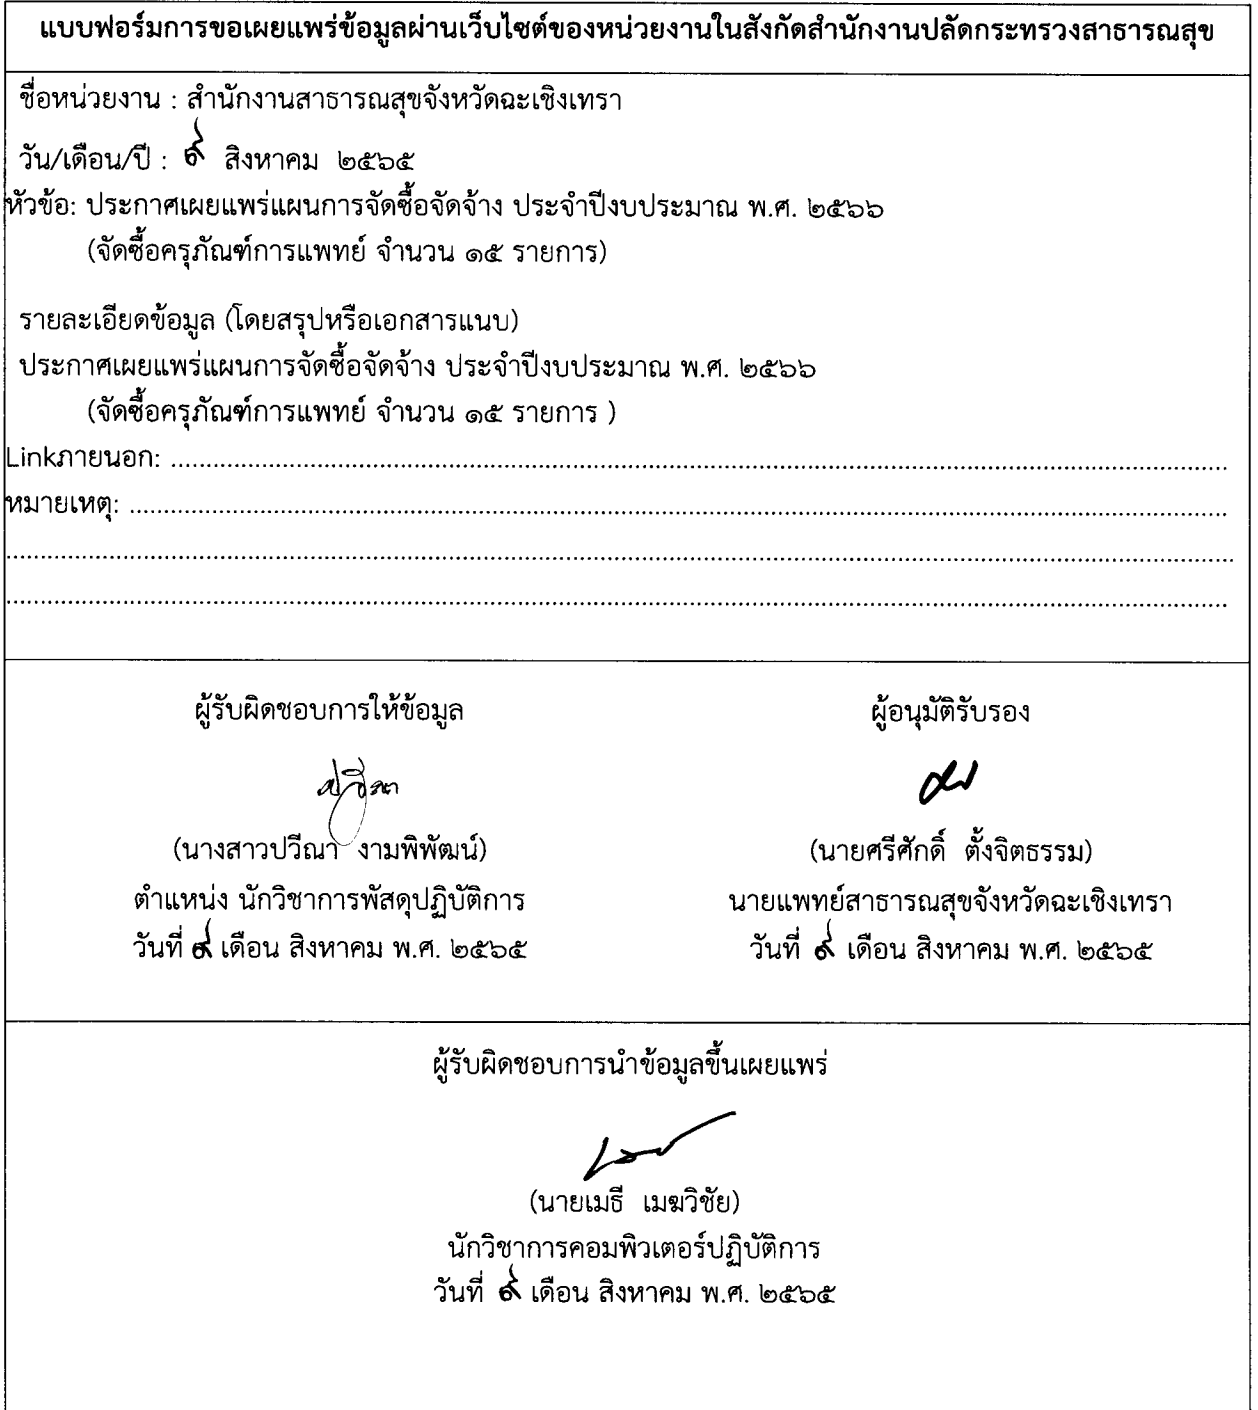 แบบฟอร์มการขอเผยแพร่ข้อมูลผ่านเว็บไซต์ของหน่วยงานในสังกัดสำนักงานปลัดกระทรวงสาธารณสุข
ชื่อหน่วยงาน : สำนักงานสาธารณสุขจังหวัดฉะเชิงเทรา
วัน/เดือน/ปี : ๙ สิงหาคม ๒๕๖๕
หัวข้อ: ประกาศเผยแพร่แผนการจัดซื้อจัดจ้าง ประจำปีงบประมาณ พ.ศ. ๒๕๖๖
(จัดซื้อครุภัณฑ์การแพทย์ จำนวน ๑๕ รายการ)
รายละเอียดข้อมูล (โดยสรุปหรือเอกสารแนบ)
ประกาศเผยแพร่แผนการจัดซื้อจัดจ้าง ประจำปีงบประมาณ พ.ศ. ๒๕๖๖
(จัดซื้อครุภัณฑ์การแพทย์ จำนวน ๑๕ รายการ )
Linkภายนอก: ........................................................................
หมายเหตุ: ........................................................................
........................................................................
........................................................................
ผู้รับผิดชอบการให้ข้อมูล ผู้อนุมัติรับรอง
ปวีณา
(นางสาวปวีณา งามพิพัฒน์) (นายศรีศักดิ์ ตั้งจิตธรรม)
ตำแหน่ง นักวิชาการพัสดุปฏิบัติการ นายแพทย์สาธารณสุขจังหวัดฉะเชิงเทรา
วันที่ ๙ เดือน สิงหาคม พ.ศ. ๒๕๖๕ วันที่ ๙ เดือน สิงหาคม พ.ศ. ๒๕๖๕
ผู้รับผิดชอบการนำข้อมูลขึ้นเผยแพร่
(นายเมธี เมฆวิชัย)
นักวิชาการคอมพิวเตอร์ปฏิบัติการ
วันที่ ๙ เดือน สิงหาคม พ.ศ. ๒๕๖๕